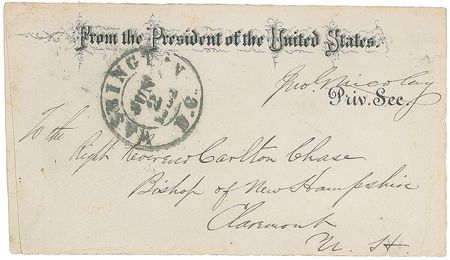 From the President of the United States.
Jno G Nicolay
Priv. Sec.
WASHINGTON D.C.
To the
Right Reverend Carlton Chase
Bishop of New Hampshire
Claremont
N. H.